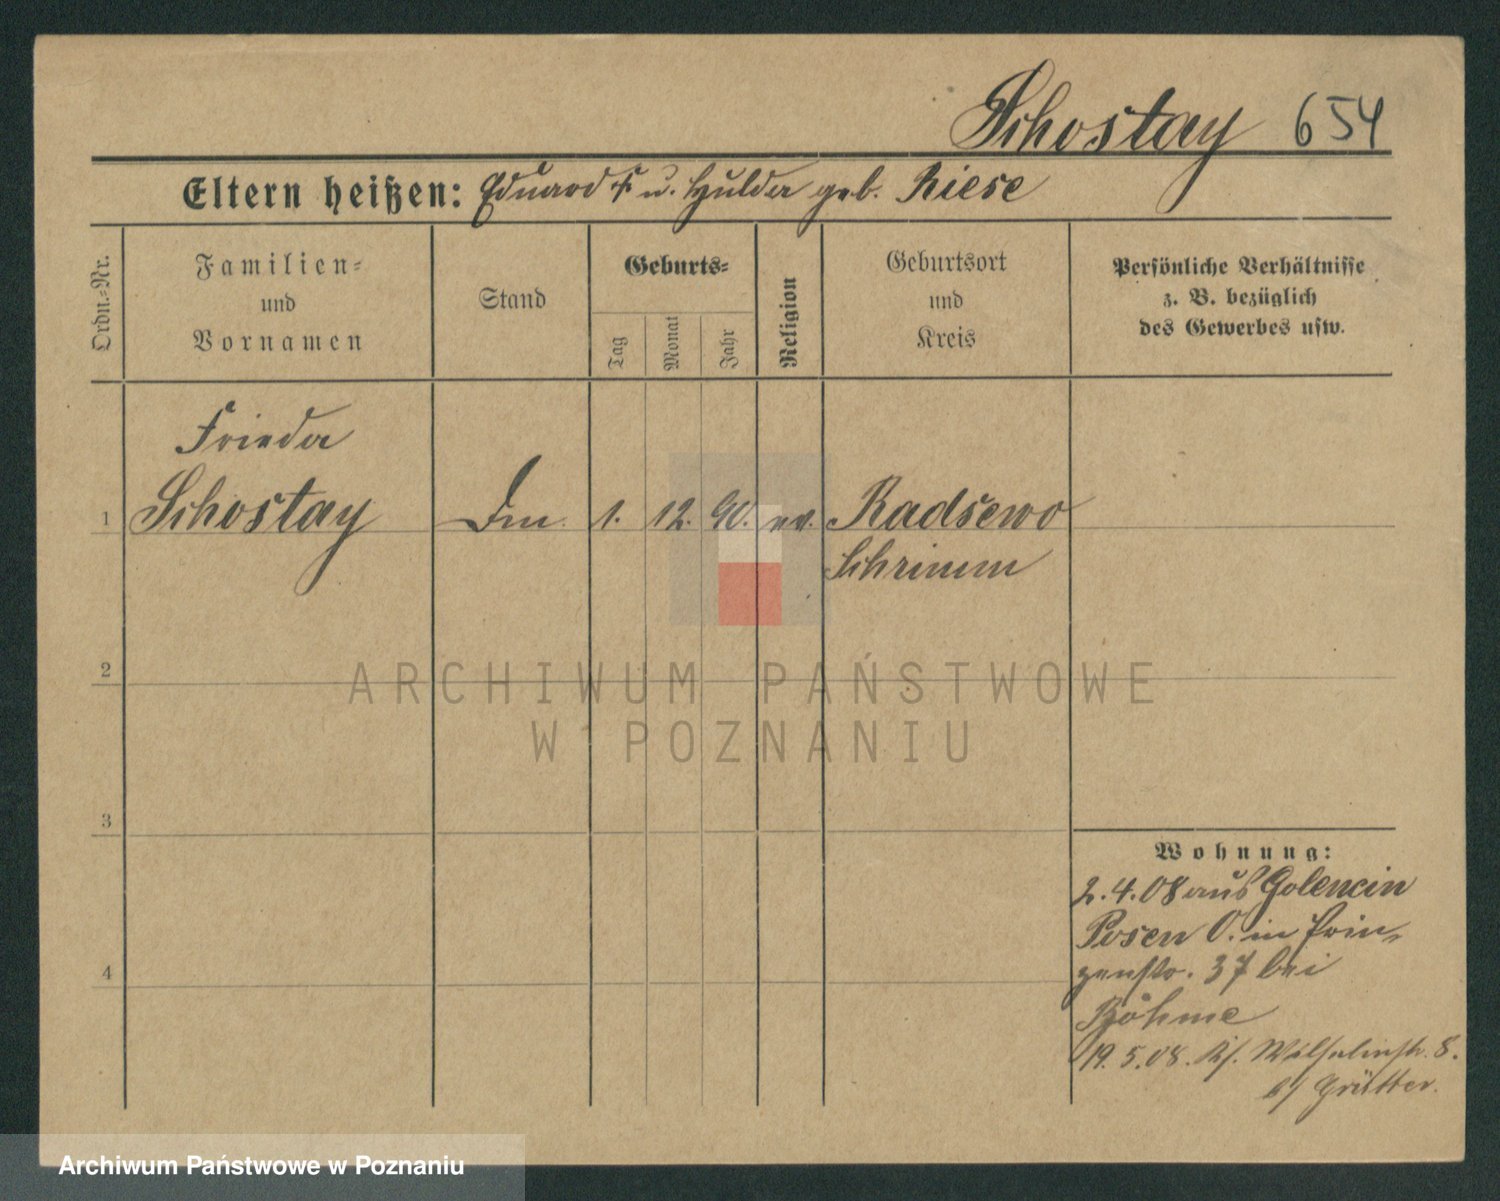 Schostay 654
Eltern heißen: Eduard † u. Hulda geb. Riese
Ordn.-Nr.
Familien-
und
Vornamen
Stand
Geburts-
Tag
Monat
Jahr
Religion
Geburtsort
und
Kreis
Persönliche Verhältnisse
z. B. bezüglich
des Gewerbes usw.
Frieda
1 Schostay 1. 12. 90. ev. Radsewo
Schrimm
ARCHIWUM PAŃSTWOWE
W POZNANIU
2
3
4
Wohnung:
2.4.08 aus Golencin
Posen O. in Prin-
zenstr. 37 bei
Böhme
19.5.08. Wilhelmstr. 8.
b/ Grütter.
Archiwum Państwowe w Poznaniu